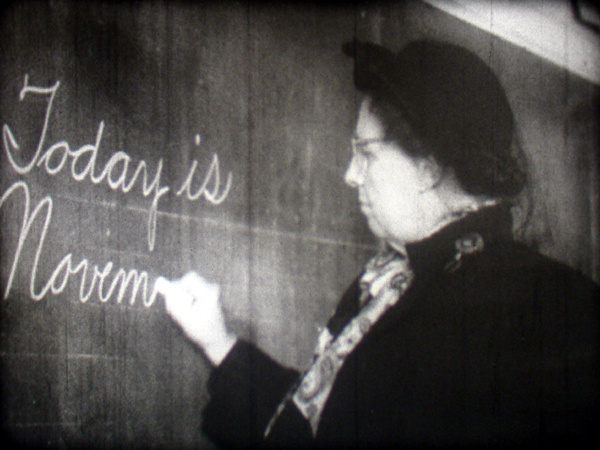 Today is
Novem